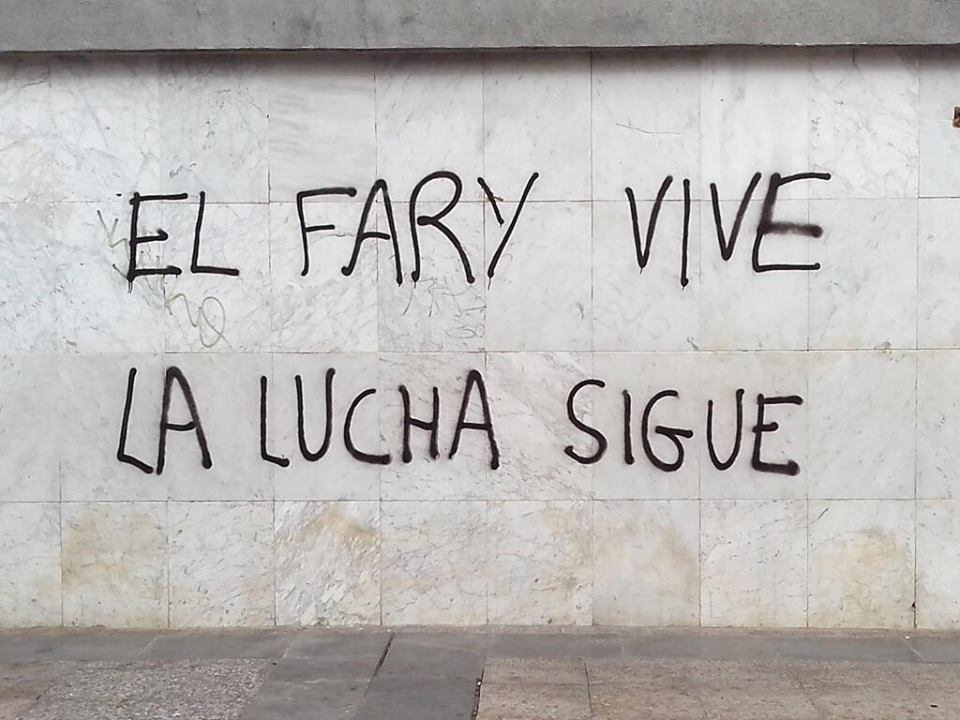 EL FARY VIVE
LA LUCHA SIGUE